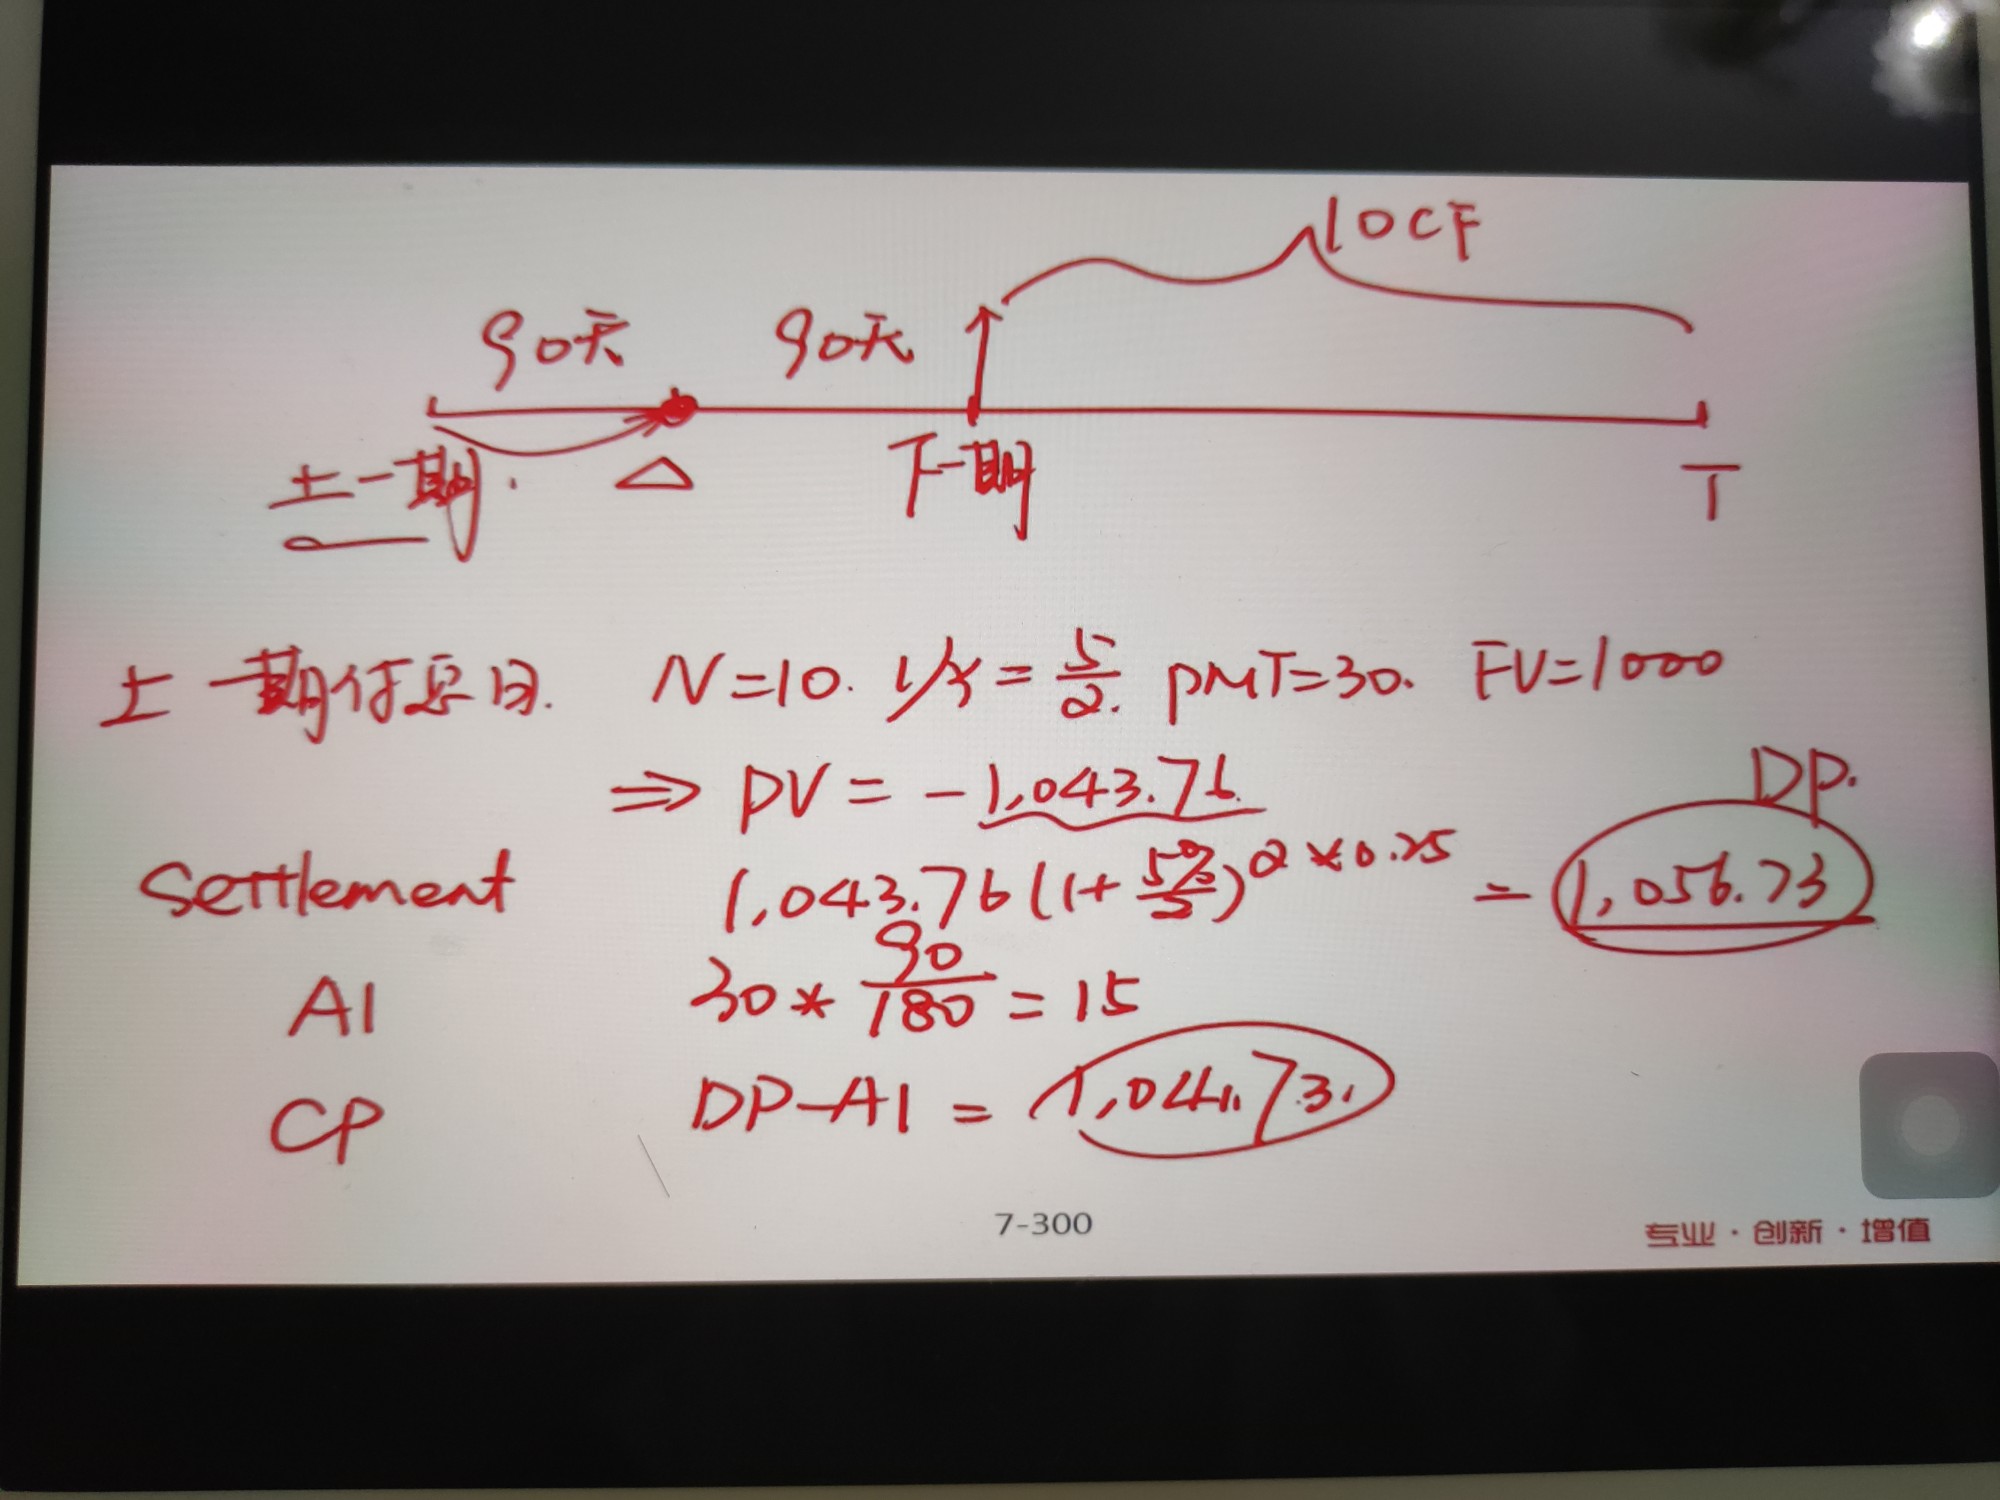 10CF
90天 90天
上一期. △ 下一期 T
上一期付息日. N=10. I/Y=5/2. PMT=30. FV=1000
⇒ PV = -1,043.76
DP.
Settlement 1,043.76(1+5%/2)^2*0.25 = 1,056.73
AI 30*90/180=15
CP DP-AI = 1,041.73.
7-300
专业·创新·增值